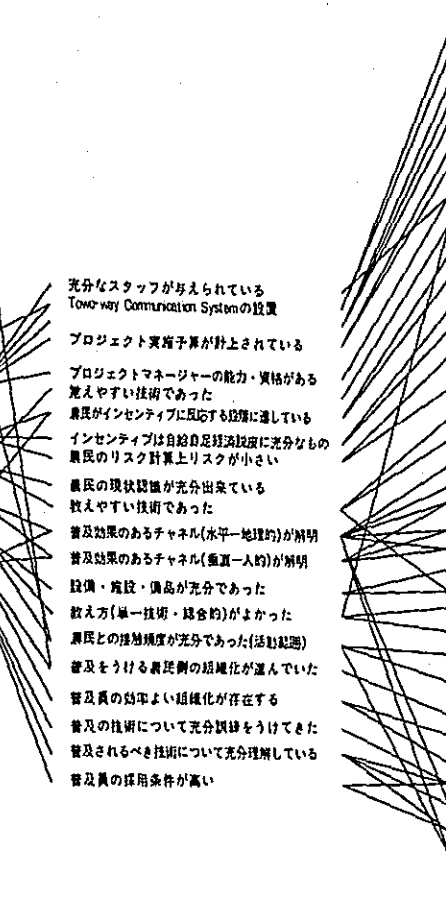 充分なスタッフが与えられている
Towo-way Communication Systemの設置
プロジェクト実施予算が計上されている
プロジェクトマネージャーの能力・資格がある
覚えやすい技術であった
農民がインセンティブに反応する段階に達している
インセンティブは自給自足経済脱皮に充分なもの
農民のリスク計算上リスクが小さい
農民の現状認識が充分出来ている
教えやすい技術であった
普及効果のあるチャネル(水平一地理的)が解明
普及効果のあるチャネル(垂直一人的)が解明
設備・施設・備品が充分であった
教え方(単一技術・総合的)がよかった
農民との接触頻度が充分であった(活動範囲)
普及をうける農民側の組織化が進んでいた
普及員の効率よい組織化が存在する
普及の技術について充分訓練をうけてきた
普及されるべき技術について充分理解している
普及員の採用条件が高い